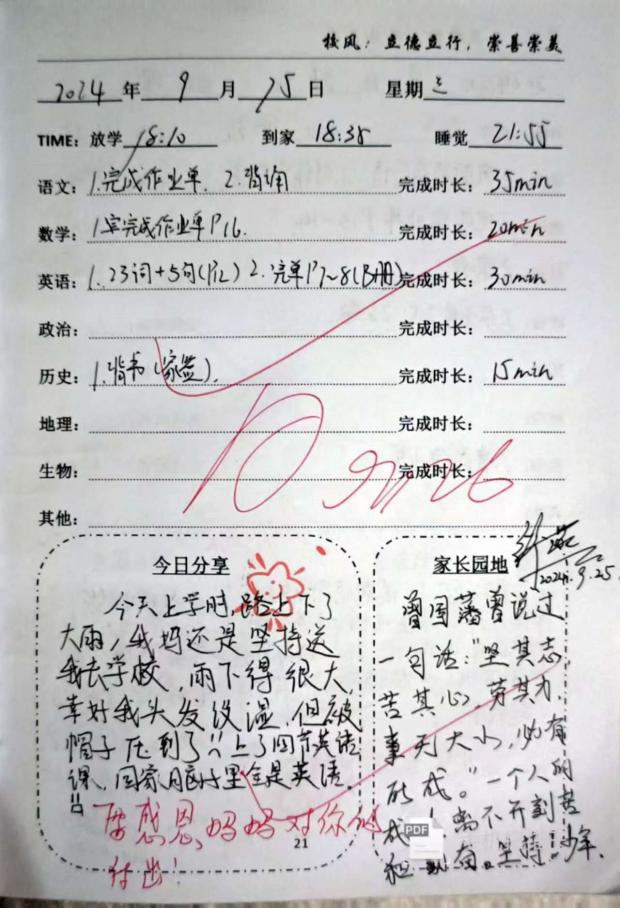 校风：立德立行，崇善崇美
2024年 9月 25日 星期三
TIME：放学 18:10 到家 18:35 睡觉 21:55
语文：1.完成作业单. 2.背诵 完成时长：35min
数学：1.完成作业单P16. 完成时长：20min
英语：1.23词+5句(P12) 2.完单P7~8(B册) 完成时长：30min
政治： 完成时长：
历史：1.背书(家签). 完成时长：15min
地理： 完成时长：
生物： 完成时长：
其他：
今日分享
今天上学时,路上下了
大雨,我妈还是坚持送
我去学校,雨下得很大,
幸好我头发没湿,但被
帽子压到了!!上了四节英语
课,回家脑子里全是英语.
感恩妈妈对你的
付出!
家长园地
2024.9.25
曾国藩曾说过
一句话:"坚其志,
苦其心,劳其力,
事无大小,必有
所成。"一个人的
成 离不开刻苦
和 坚持 少年.
PDF
21